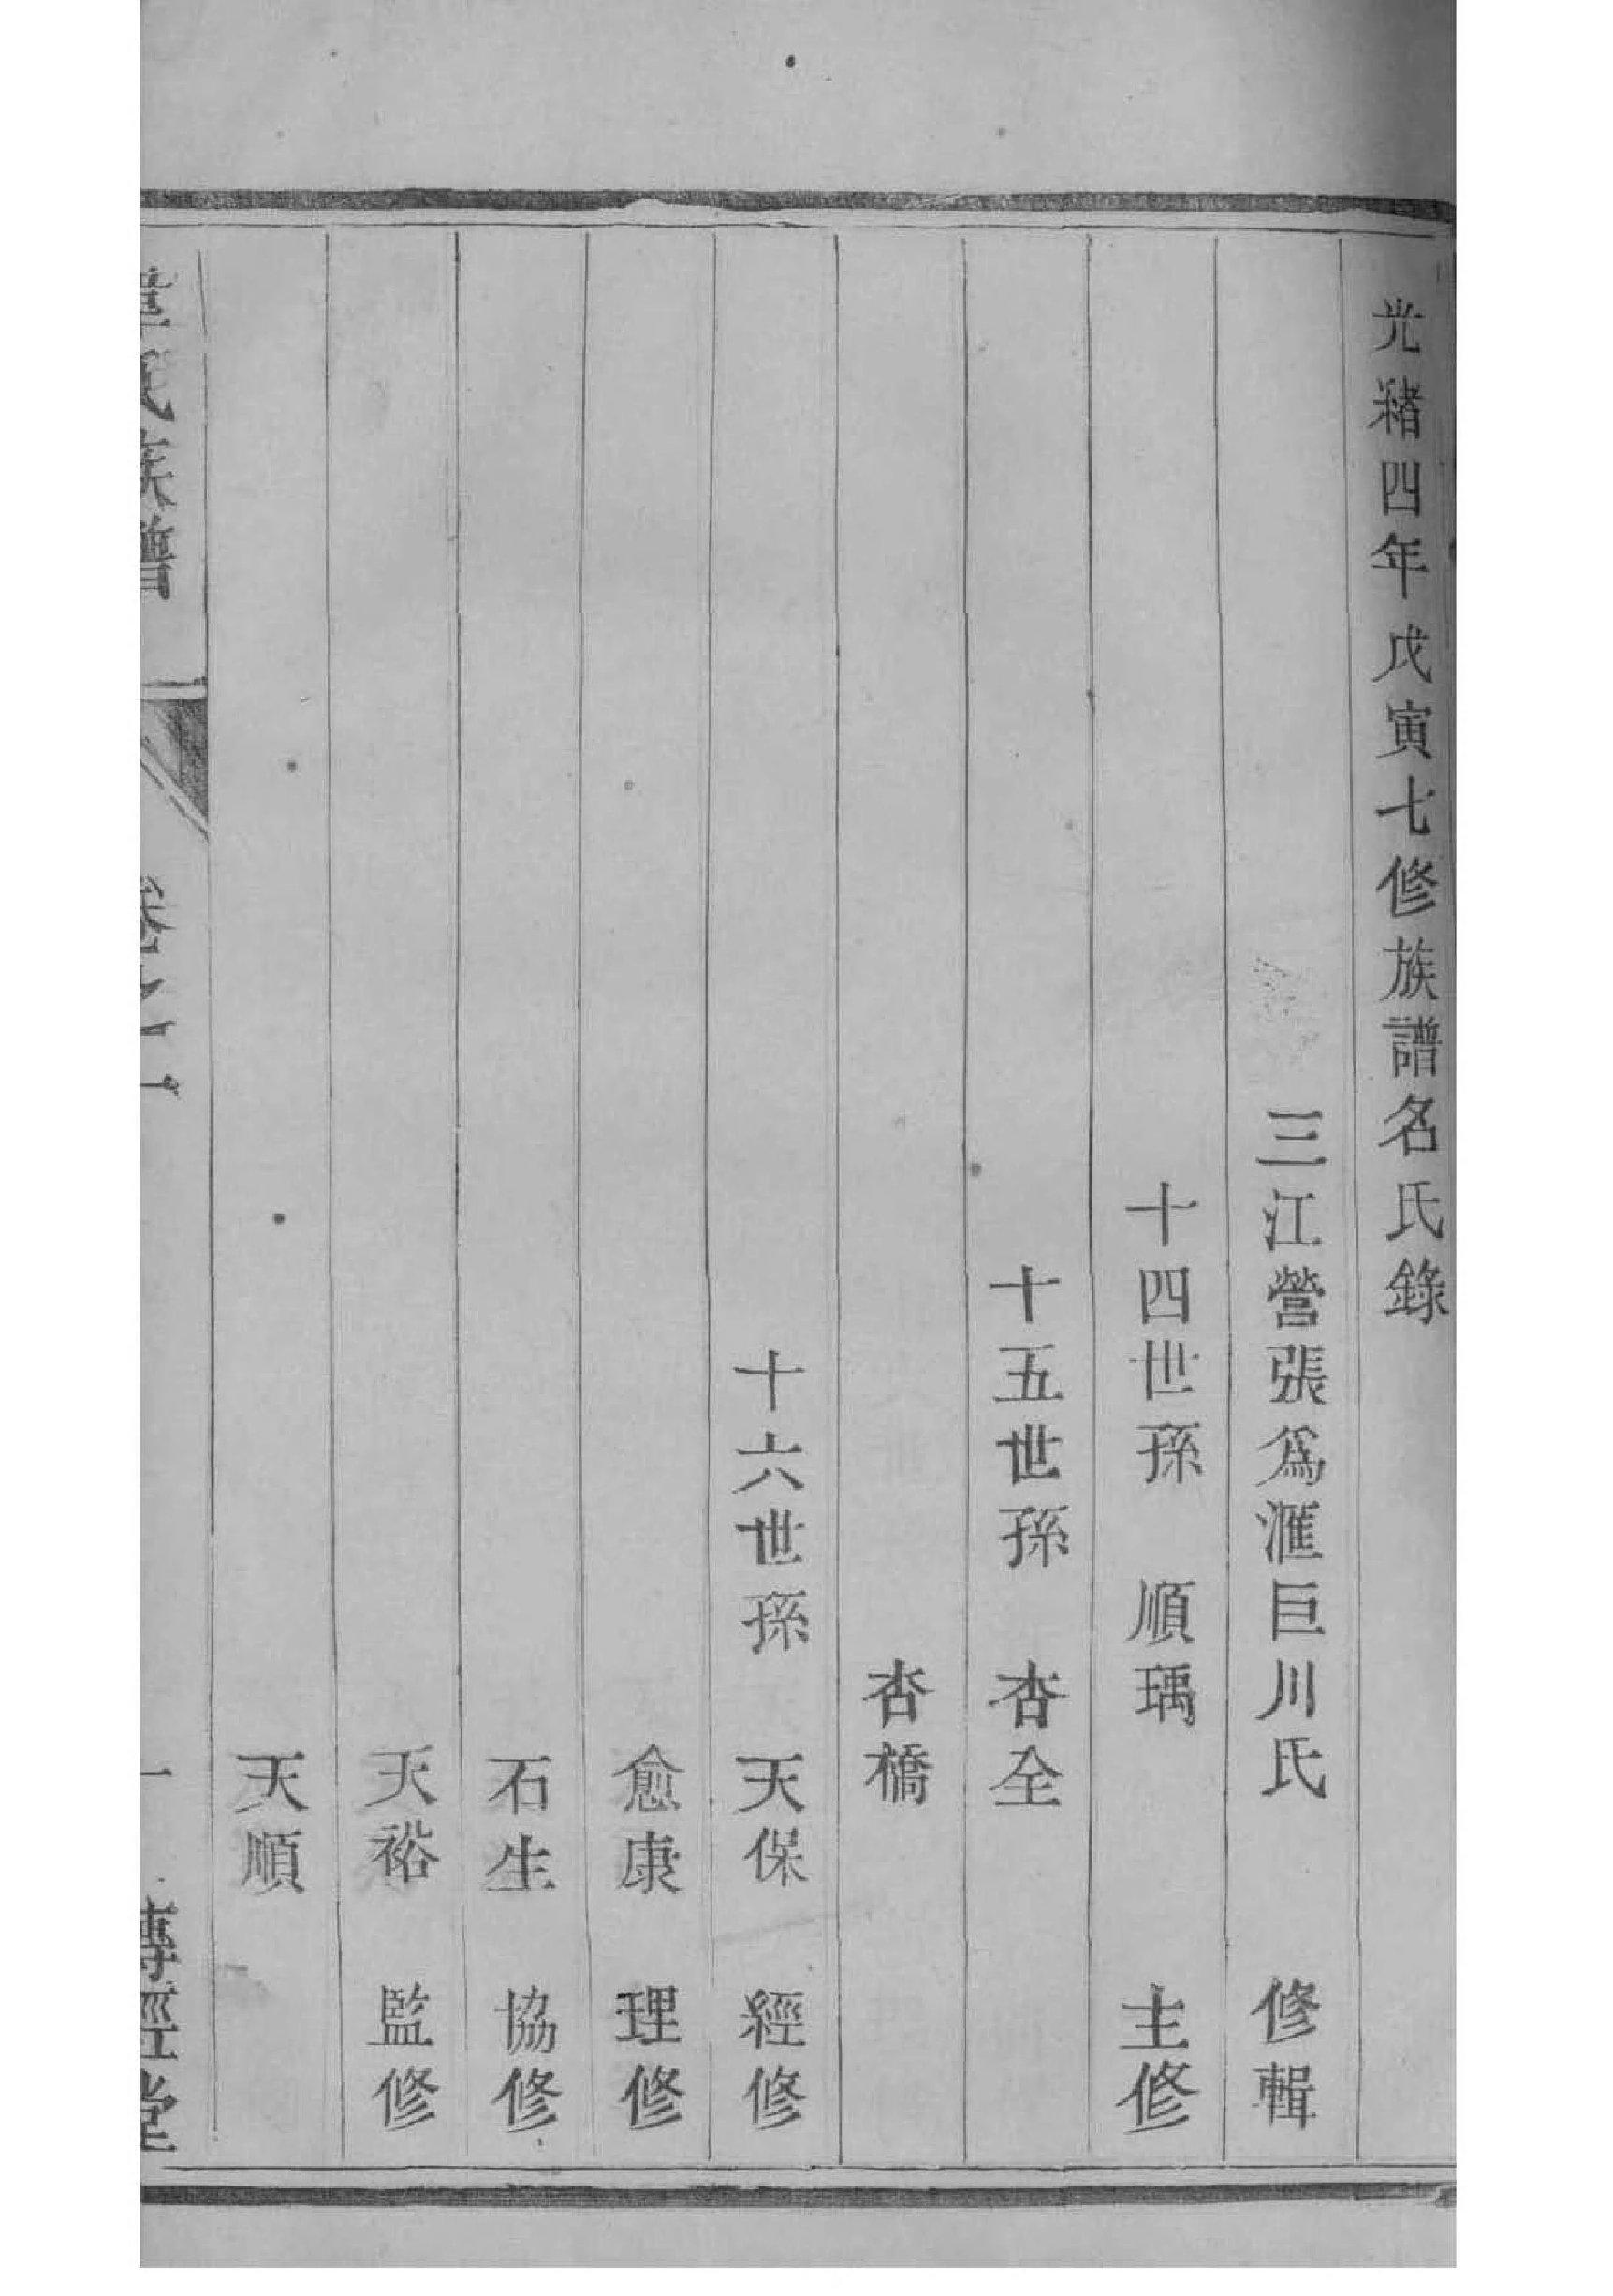 光緒四年戊寅七修族譜名氏錄
三江營張爲滙巨川氏 修輯
十四世孫 順瑀 主修
十五世孫 杏全
杏橋
十六世孫 天保 經修
愈康 理修
石生 協修
天裕 監修
天順
氏族譜 卷之一 一 傳經堂